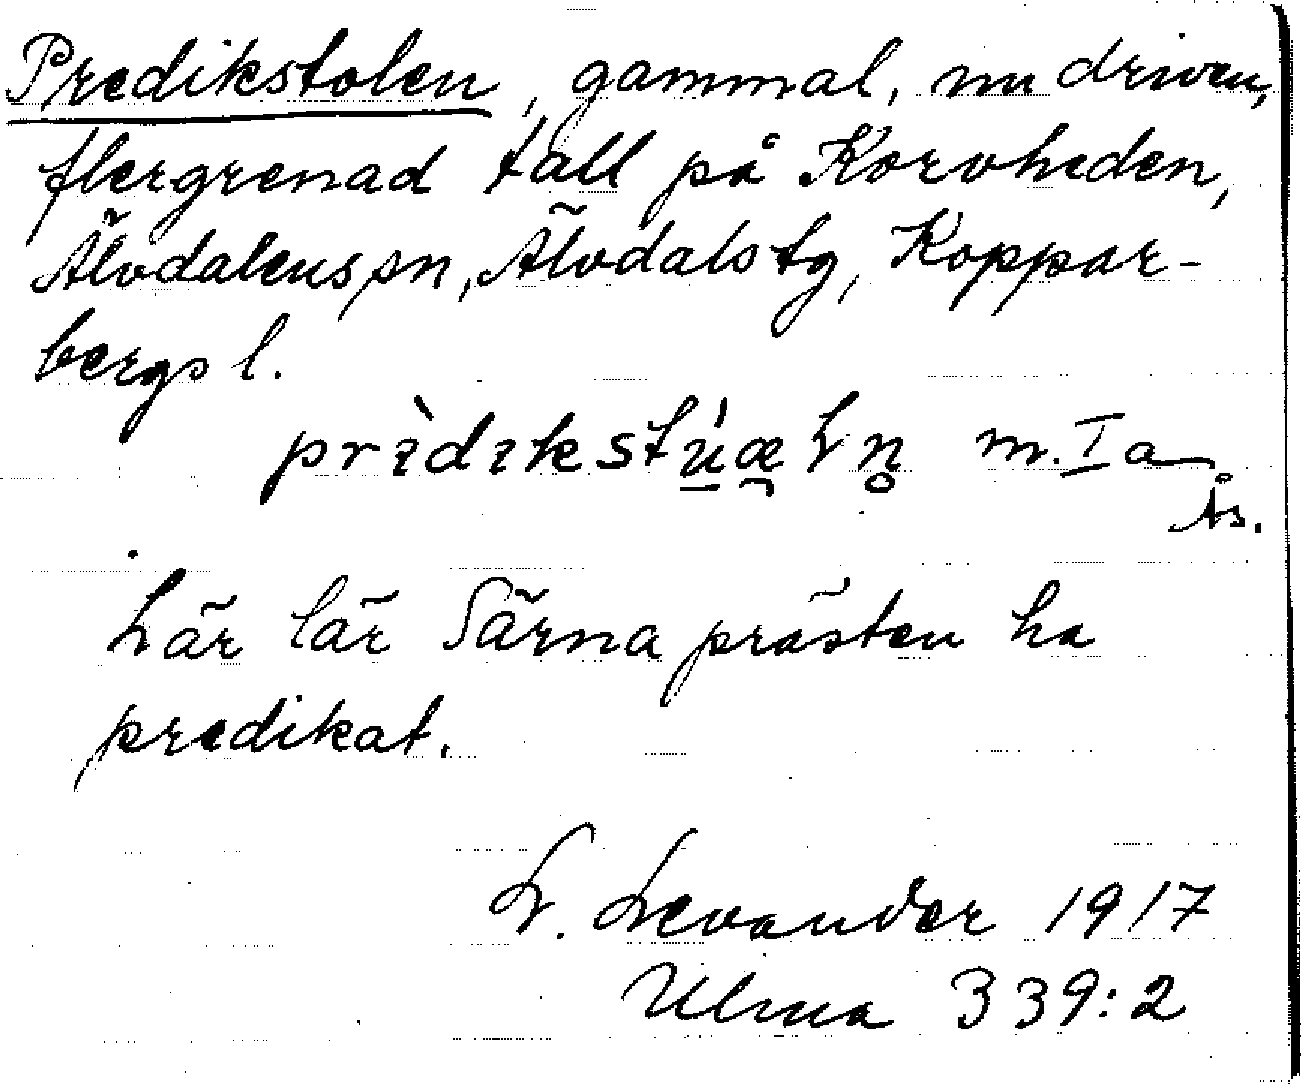 Predikstolen, gammal, nu driven,
flergrenad tall på Korvheden,
Älvdalens sn, Älvdals tg, Koppar-
bergs l.
m. I a
Ås.
här lär Särnaprästen ha
predikat.
L. Levander 1917
Ulma 339:2